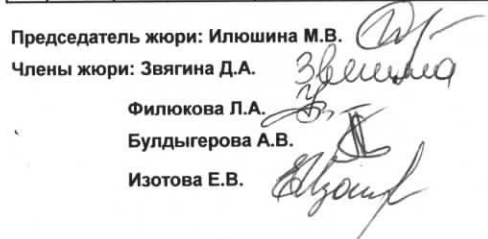 Председатель жюри: Илюшина М.В.
Члены жюри: Звягина Д.А.
Филюкова Л.А.
Булдыгерова А.В.
Изотова Е.В.